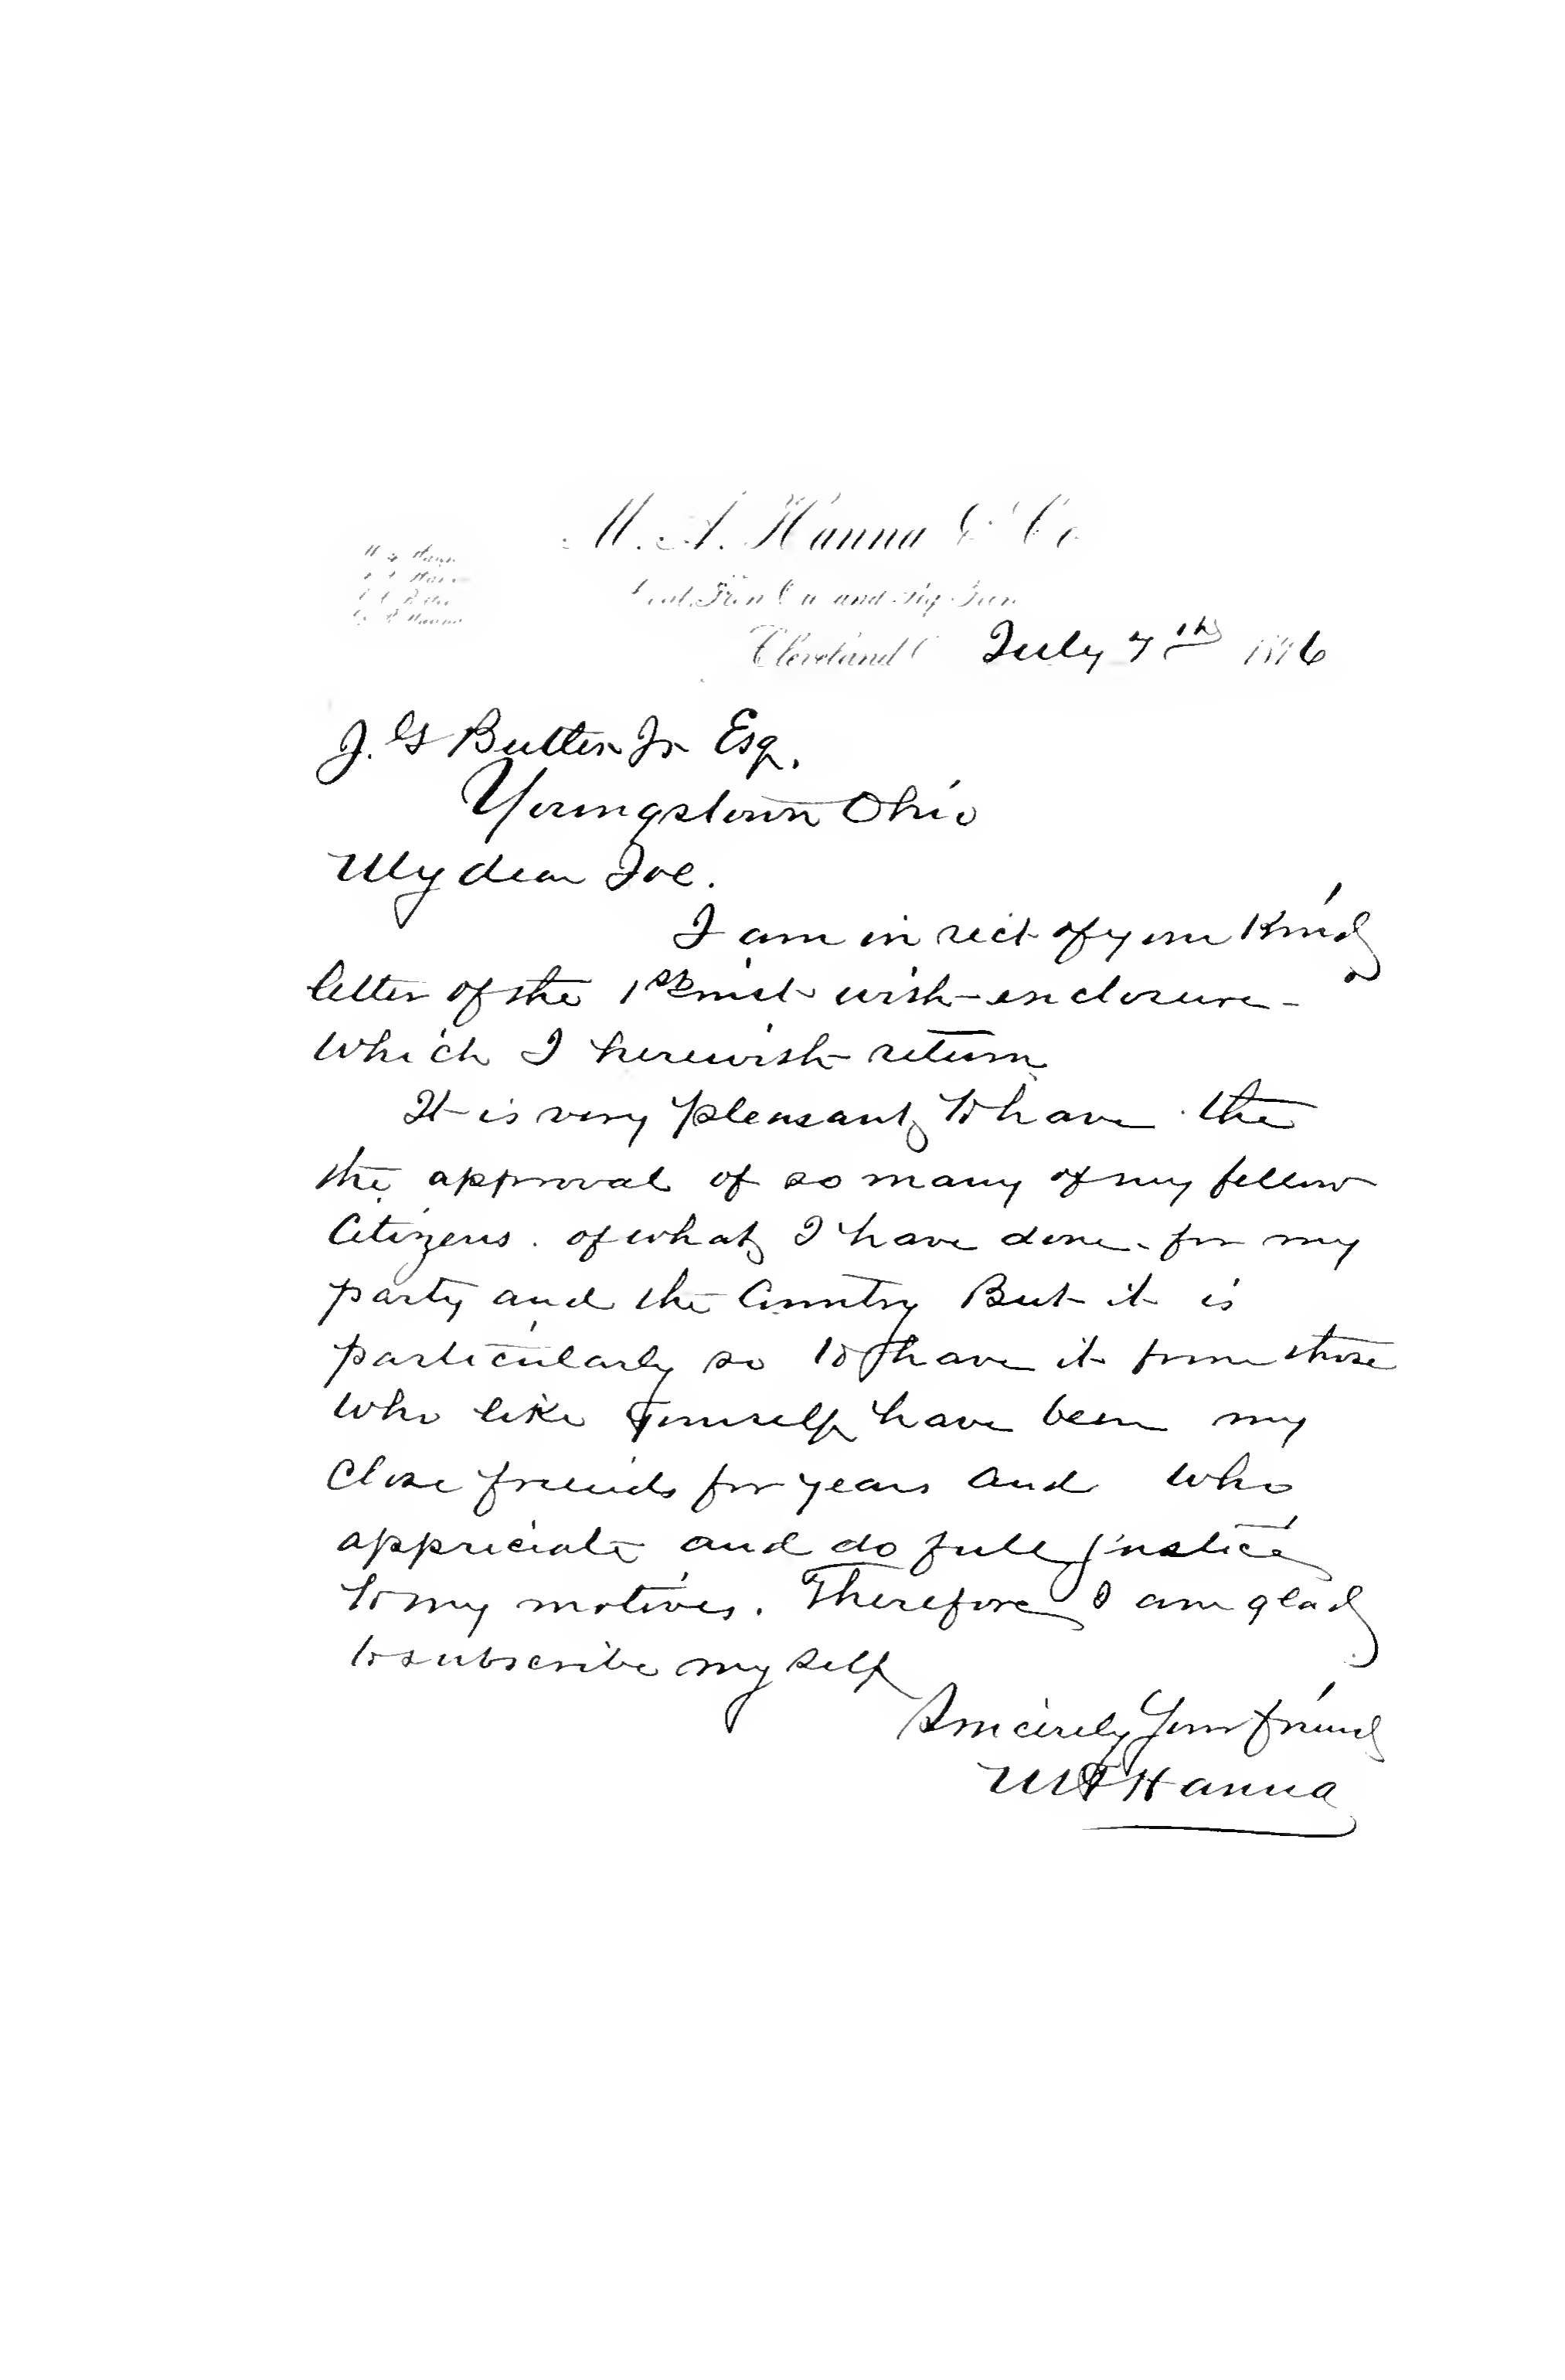 M. A. Hanna & Co
Coal, Iron Ore and Pig Iron
Cleveland O July 7th 1896
J. G Butler Jr Esq.
Youngstown Ohio
My dear Joe.
I am in rect of your kind
letter of the 1st inst with enclosure -
which I herewith return
It is very pleasant to have the
the approval of so many of my fellow
Citizens . of what I have done - for my
party and the Country But it is
particularly so to have it from those
who like yourself have been my
close friends for years and who
appriciate and do full justice
to my motives. Therefore I am glad
to subscribe my self
Sincerely Your friend
MA Hanna